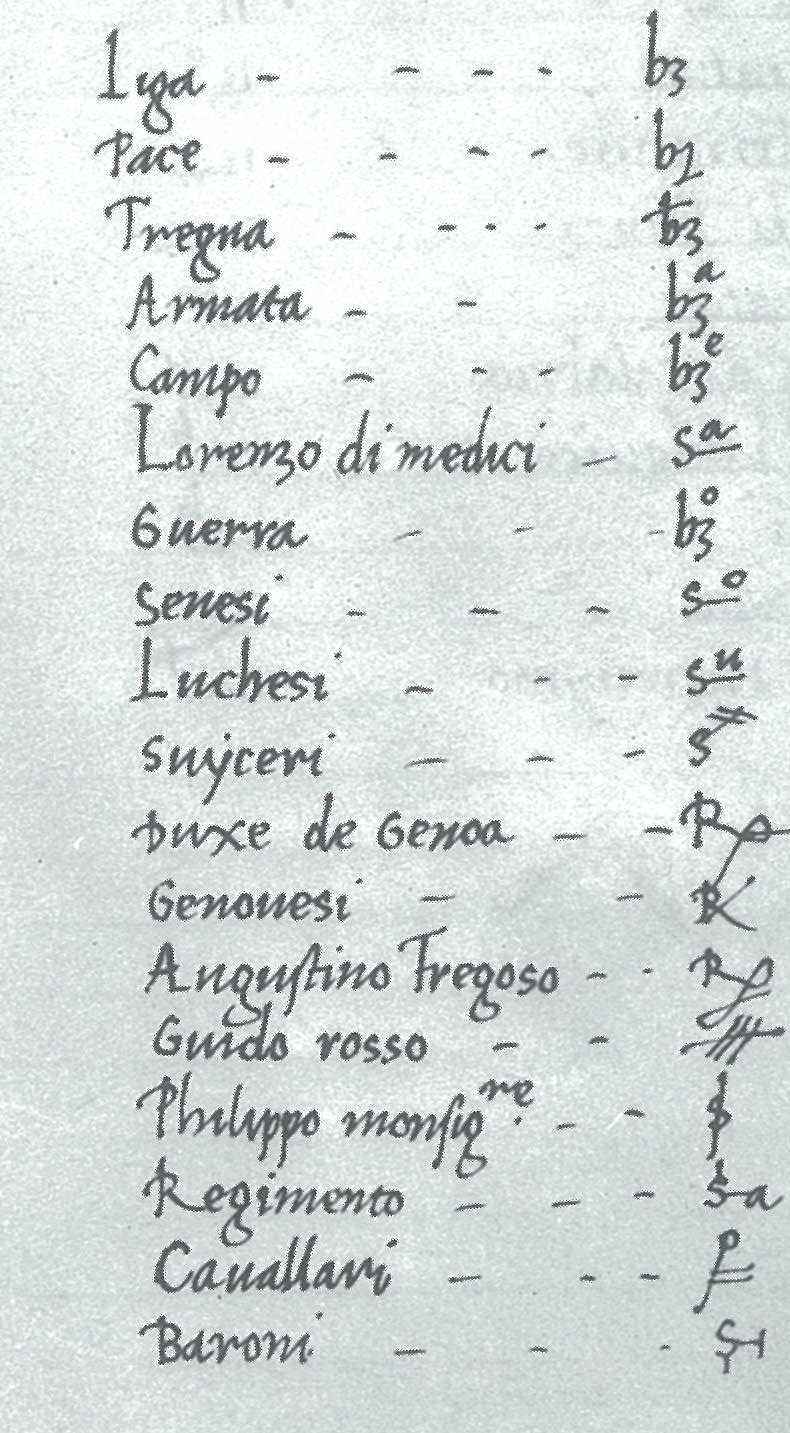 Liga - - - - b3
Pace - - - - b2
Tregua - - - - b3
Armata - - b3ᵃ
Campo - - - b3ᵉ
Lorenzo di medici - sᵃ
Guerra - - - b3ᵒ
Senesi - - - sᵒ
Luchesi - - - sᵘ
Suyceri - - - s
Duxe de Genoa - - R
Genouesi - - R
Augustino Fregoso - - R
Guido rosso - -
Philippo monsigʳᵉ. - -
Regimento - - - s-a
Cauallari - - -
Baroni - - -